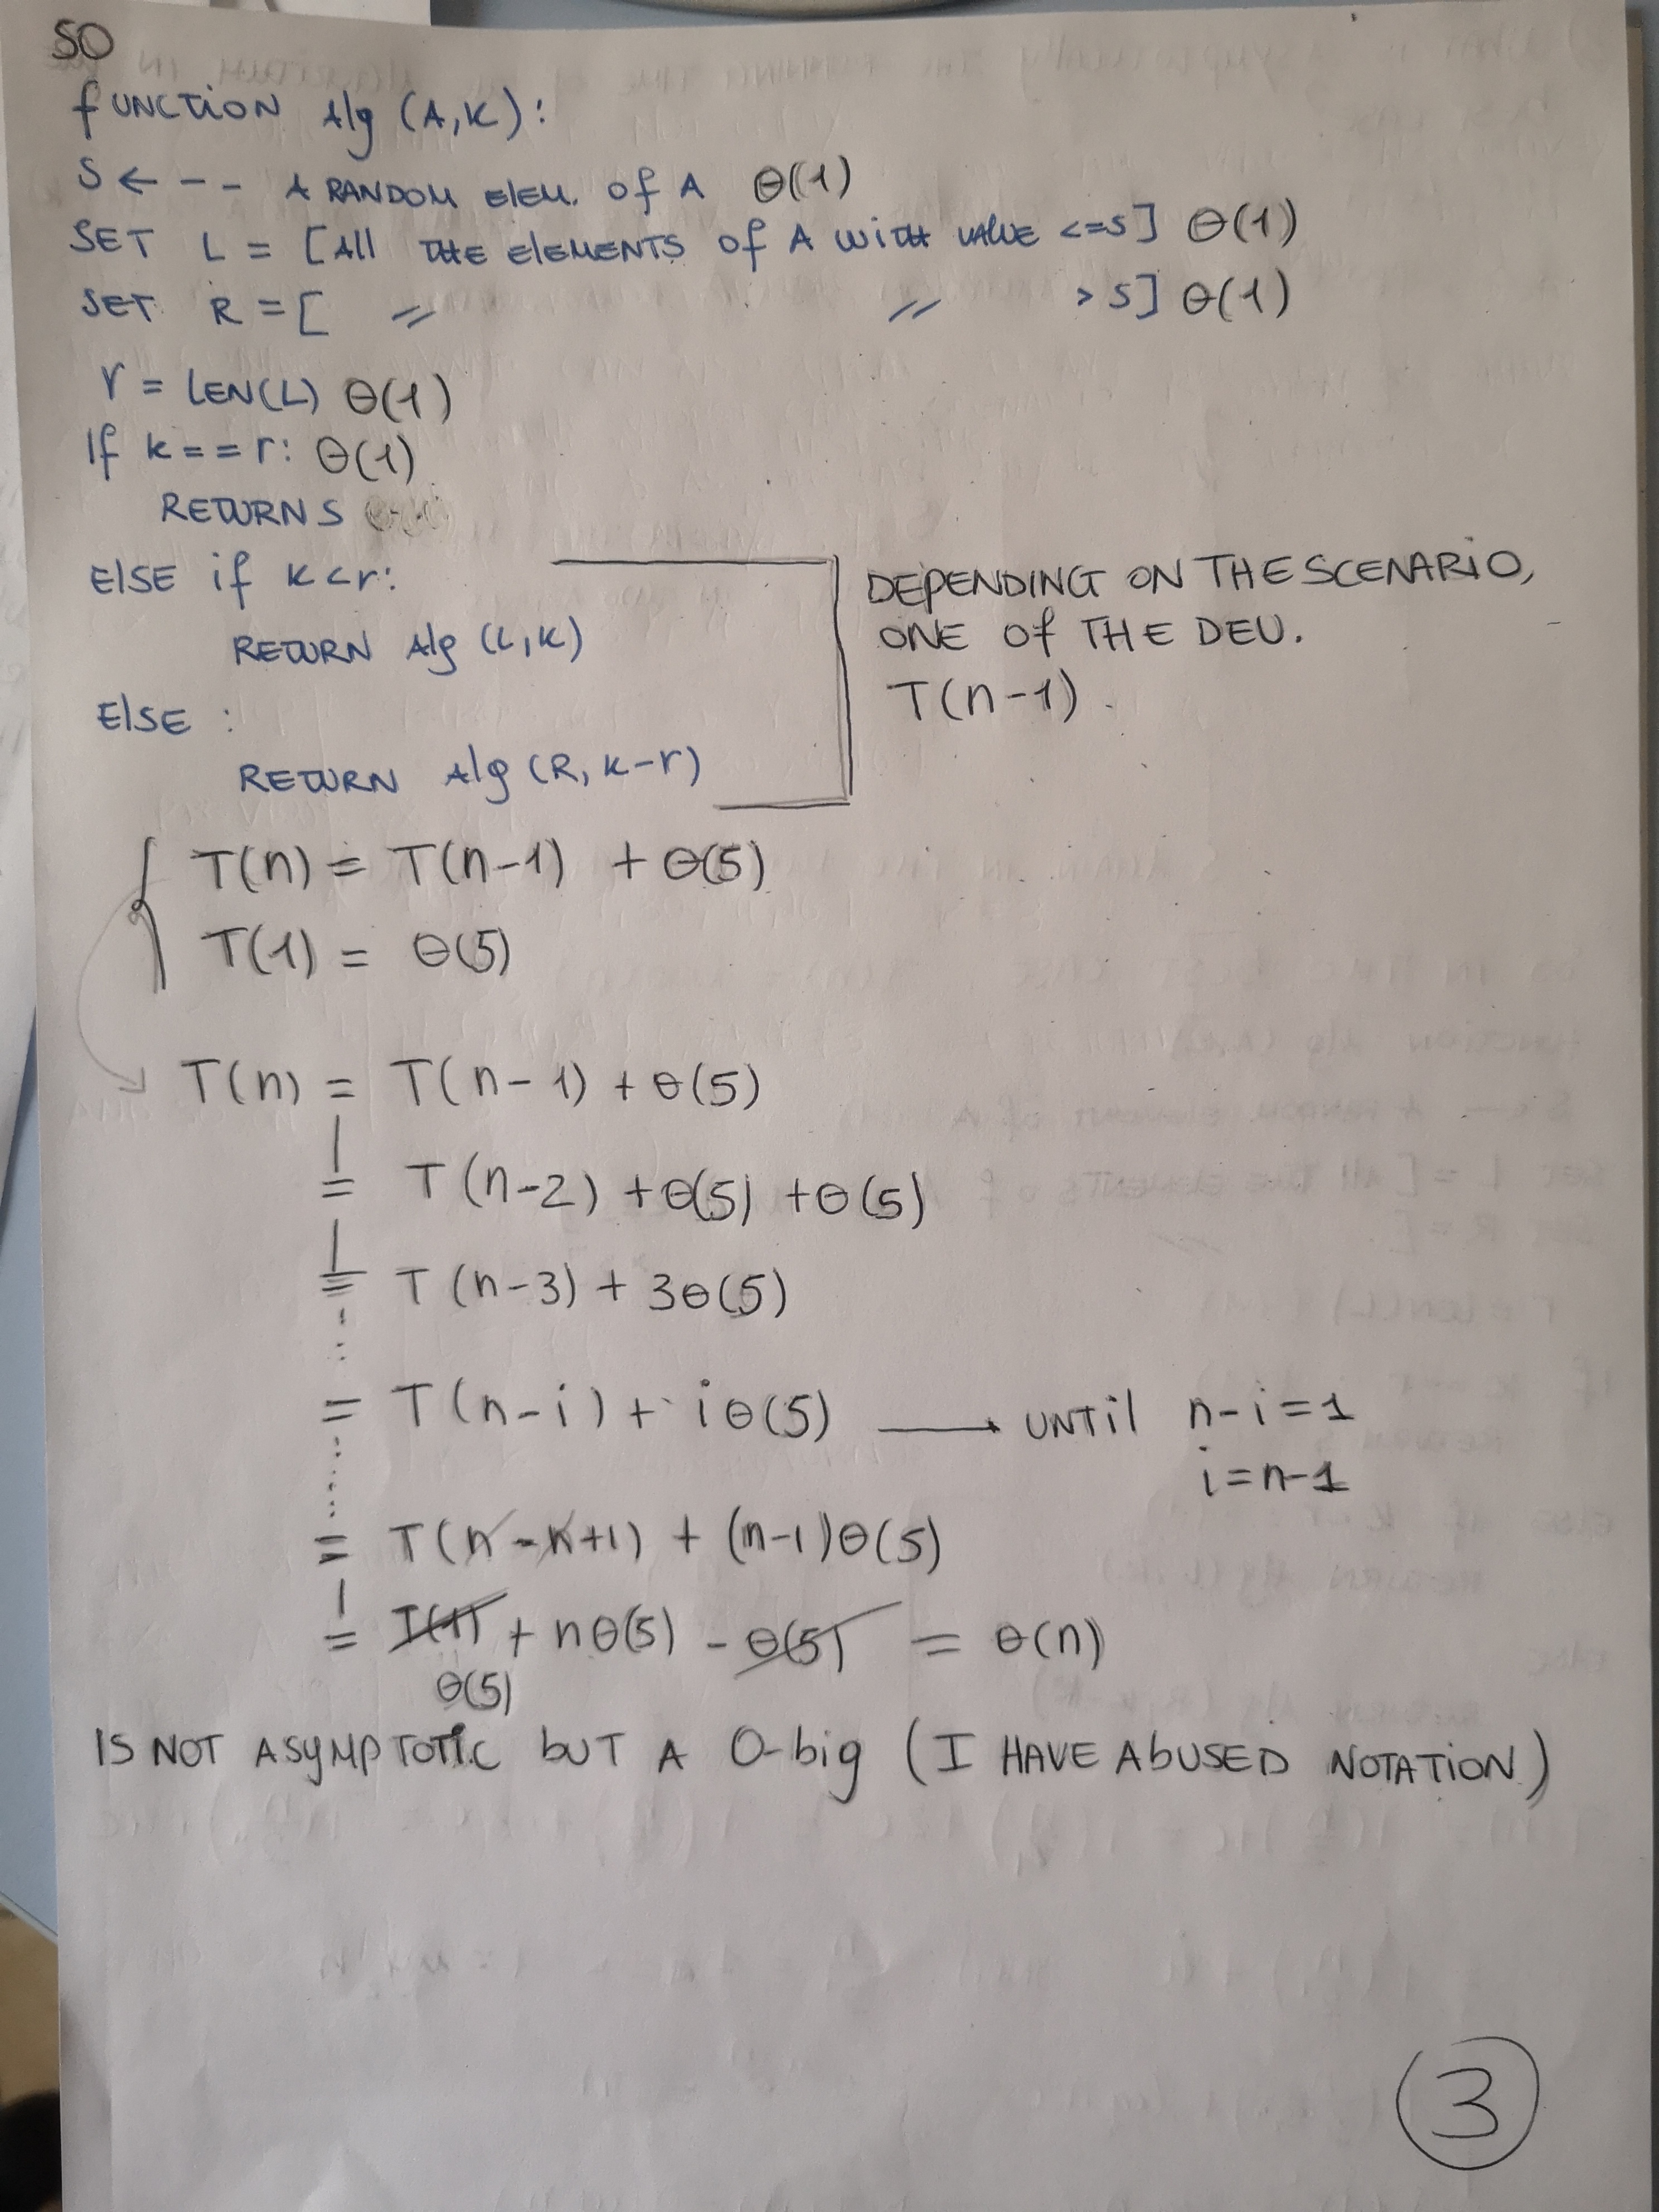 SO
fUNCTION Alg (A,K):
S ← - - A RANDOM ElEM. Of A θ(1)
SET L = [All THE ElEMENTS Of A WITH VALUE <=S] θ(1)
SET R = [ // // > S] θ(1)
r = LEN(L) θ(1)
If K == r: θ(1)
RETURN S
ElSE if K < r:
RETURN Alg (L,K)
ElSE :
RETURN Alg (R, K-r)
DEPENDING ON THE SCENARIO,
ONE Of THE DEU.
T(n-1)
T(n) = T(n-1) + θ(5)
T(1) = θ(5)
T(n) = T(n-1) + θ(5)
= T(n-2) + θ(5) + θ(5)
= T(n-3) + 3θ(5)
= T(n-i) + iθ(5) → UNTIL n-i=1
i=n-1
= T(n-n+1) + (n-1)θ(5)
= T(1) + nθ(5) - θ(5) = θ(n)
θ(5)
IS NOT ASYMPTOTIC bUT A O-big (I HAVE AbUSED NOTATION)
3